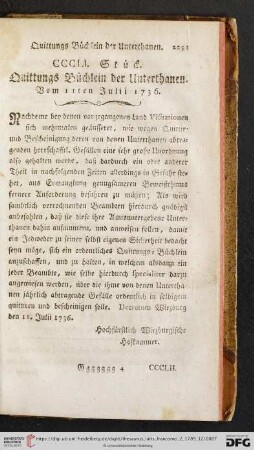 Quittungs Büchlein der Unterthanen.
CCCLI. Stück.
Quittungs Büchlein der Unterthanen.
Vom 11ten Julii 1736.
Nachdeme bey denen vorgegangenen Land Visitationen
sich mehrmalen geäusseret, wie wegen Quittir-
und Bescheinigung deren von denen Unterthanen abtra-
genden herrschaftl. Gefällen eine sehr grosse Unordnung
also gehalten werde, daß dardurch ein oder anderer
Theil in nachfolgenden Zeiten allerdings in Gefahr ste-
het, aus Ermanglung genugsameren Beweisthums
ferner Anforderung befahren zu müssen; Als wird
sämtlich verrechnenden Beambten hierdurch gnädigst
anbefohlen, daß sie diese ihre Amtsangehörige Unter-
thanen dahin anzumahnen, und anweisen sollen, damit
ein Jedweder zu seiner selbst eigenen Sicherheit bedacht
seyn möge, sich ein ordentliches Quittungs-Büchlein
anzuschaffen, und zu halten, in welchem alsdann ein
jeder Beambte, wie selbe hierdurch specialiter darzu
angewiesen werden, über die ihme von denen Untertha-
nen jährlich abtragende Gefälle ordentlich in selbigem
quittiren und bescheinigen solle. Decretum Wirzburg
den 11. Julii 1736.
Hochfürstlich Wirzburgische
Hofkammer.
Ggggggg 4 CCCLII.
UNIVERSITÄTS-BIBLIOTHEK HEIDELBERG
© Universitätsbibliothek Heidelberg
gefördert durch die DFG